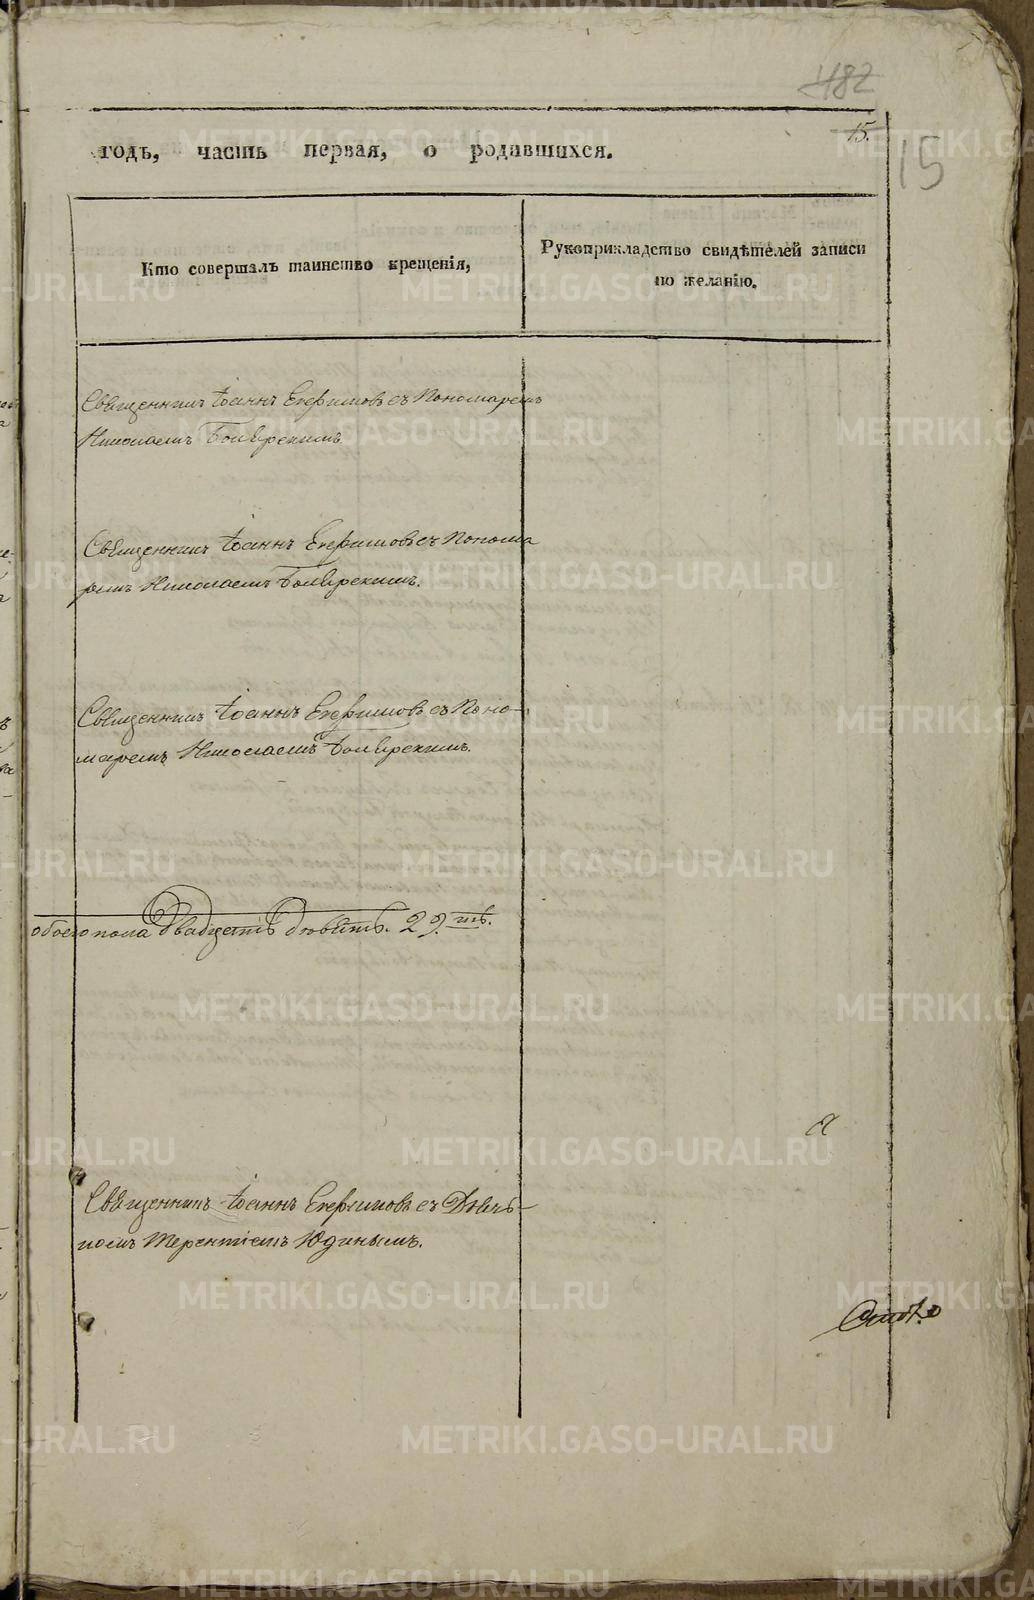 482
15.
15
годъ, часть первая, о родившихся.
Кто совершалъ таинство крещенія,
Рукоприкладство свидѣтелей записи
по желанію.
Священникъ Іоаннъ Ексримовъ съ Пономаремъ
Николаемъ
Священникъ Іоаннъ съ Понома
ремъ Николаемъ
Священникъ Іоаннъ съ Поно-
маремъ Николаемъ
обоего пола двадцать девять. 29.
Священникъ Іоаннъ съ Дьяч-
комъ Терентіемъ Юдинымъ.
METRIKI.GASO-URAL.RU